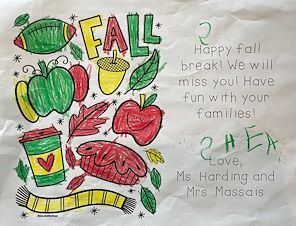 FALL
S
Happy fall
break! We will
miss you! Have
fun with your
families!
SHEA
Love,
Ms. Harding and
Mrs Massais